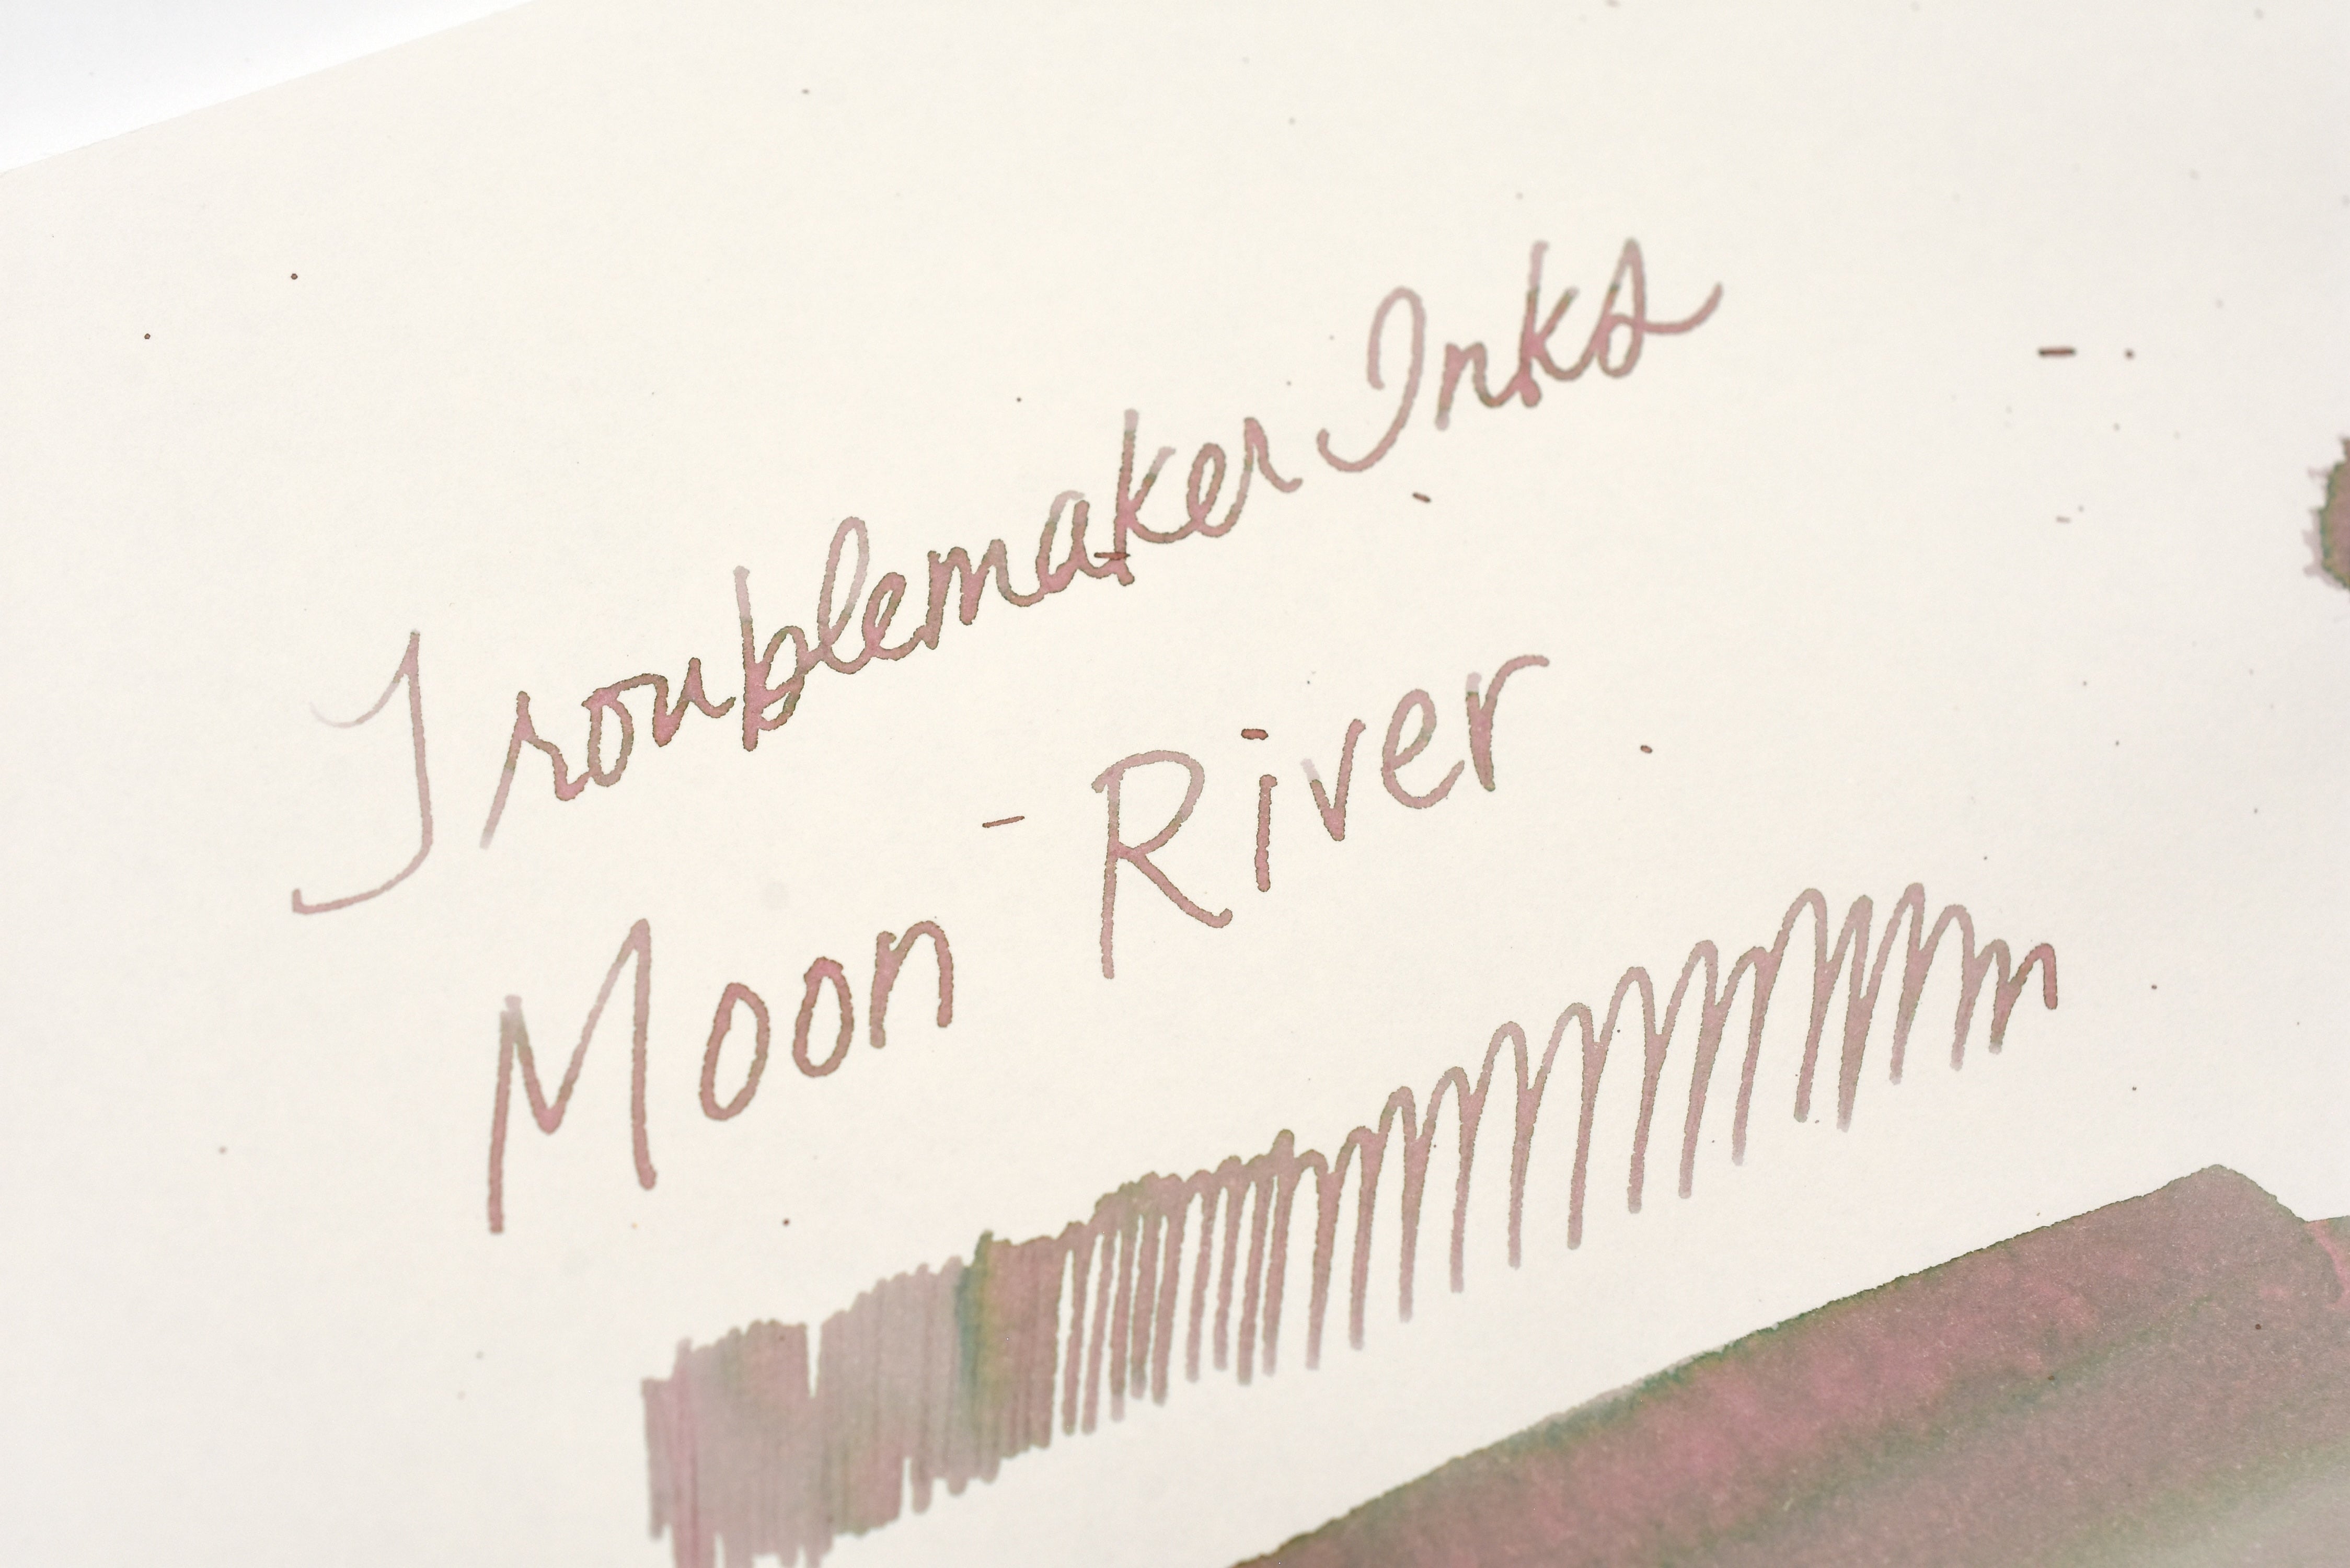 Troublemaker Inks
Moon River